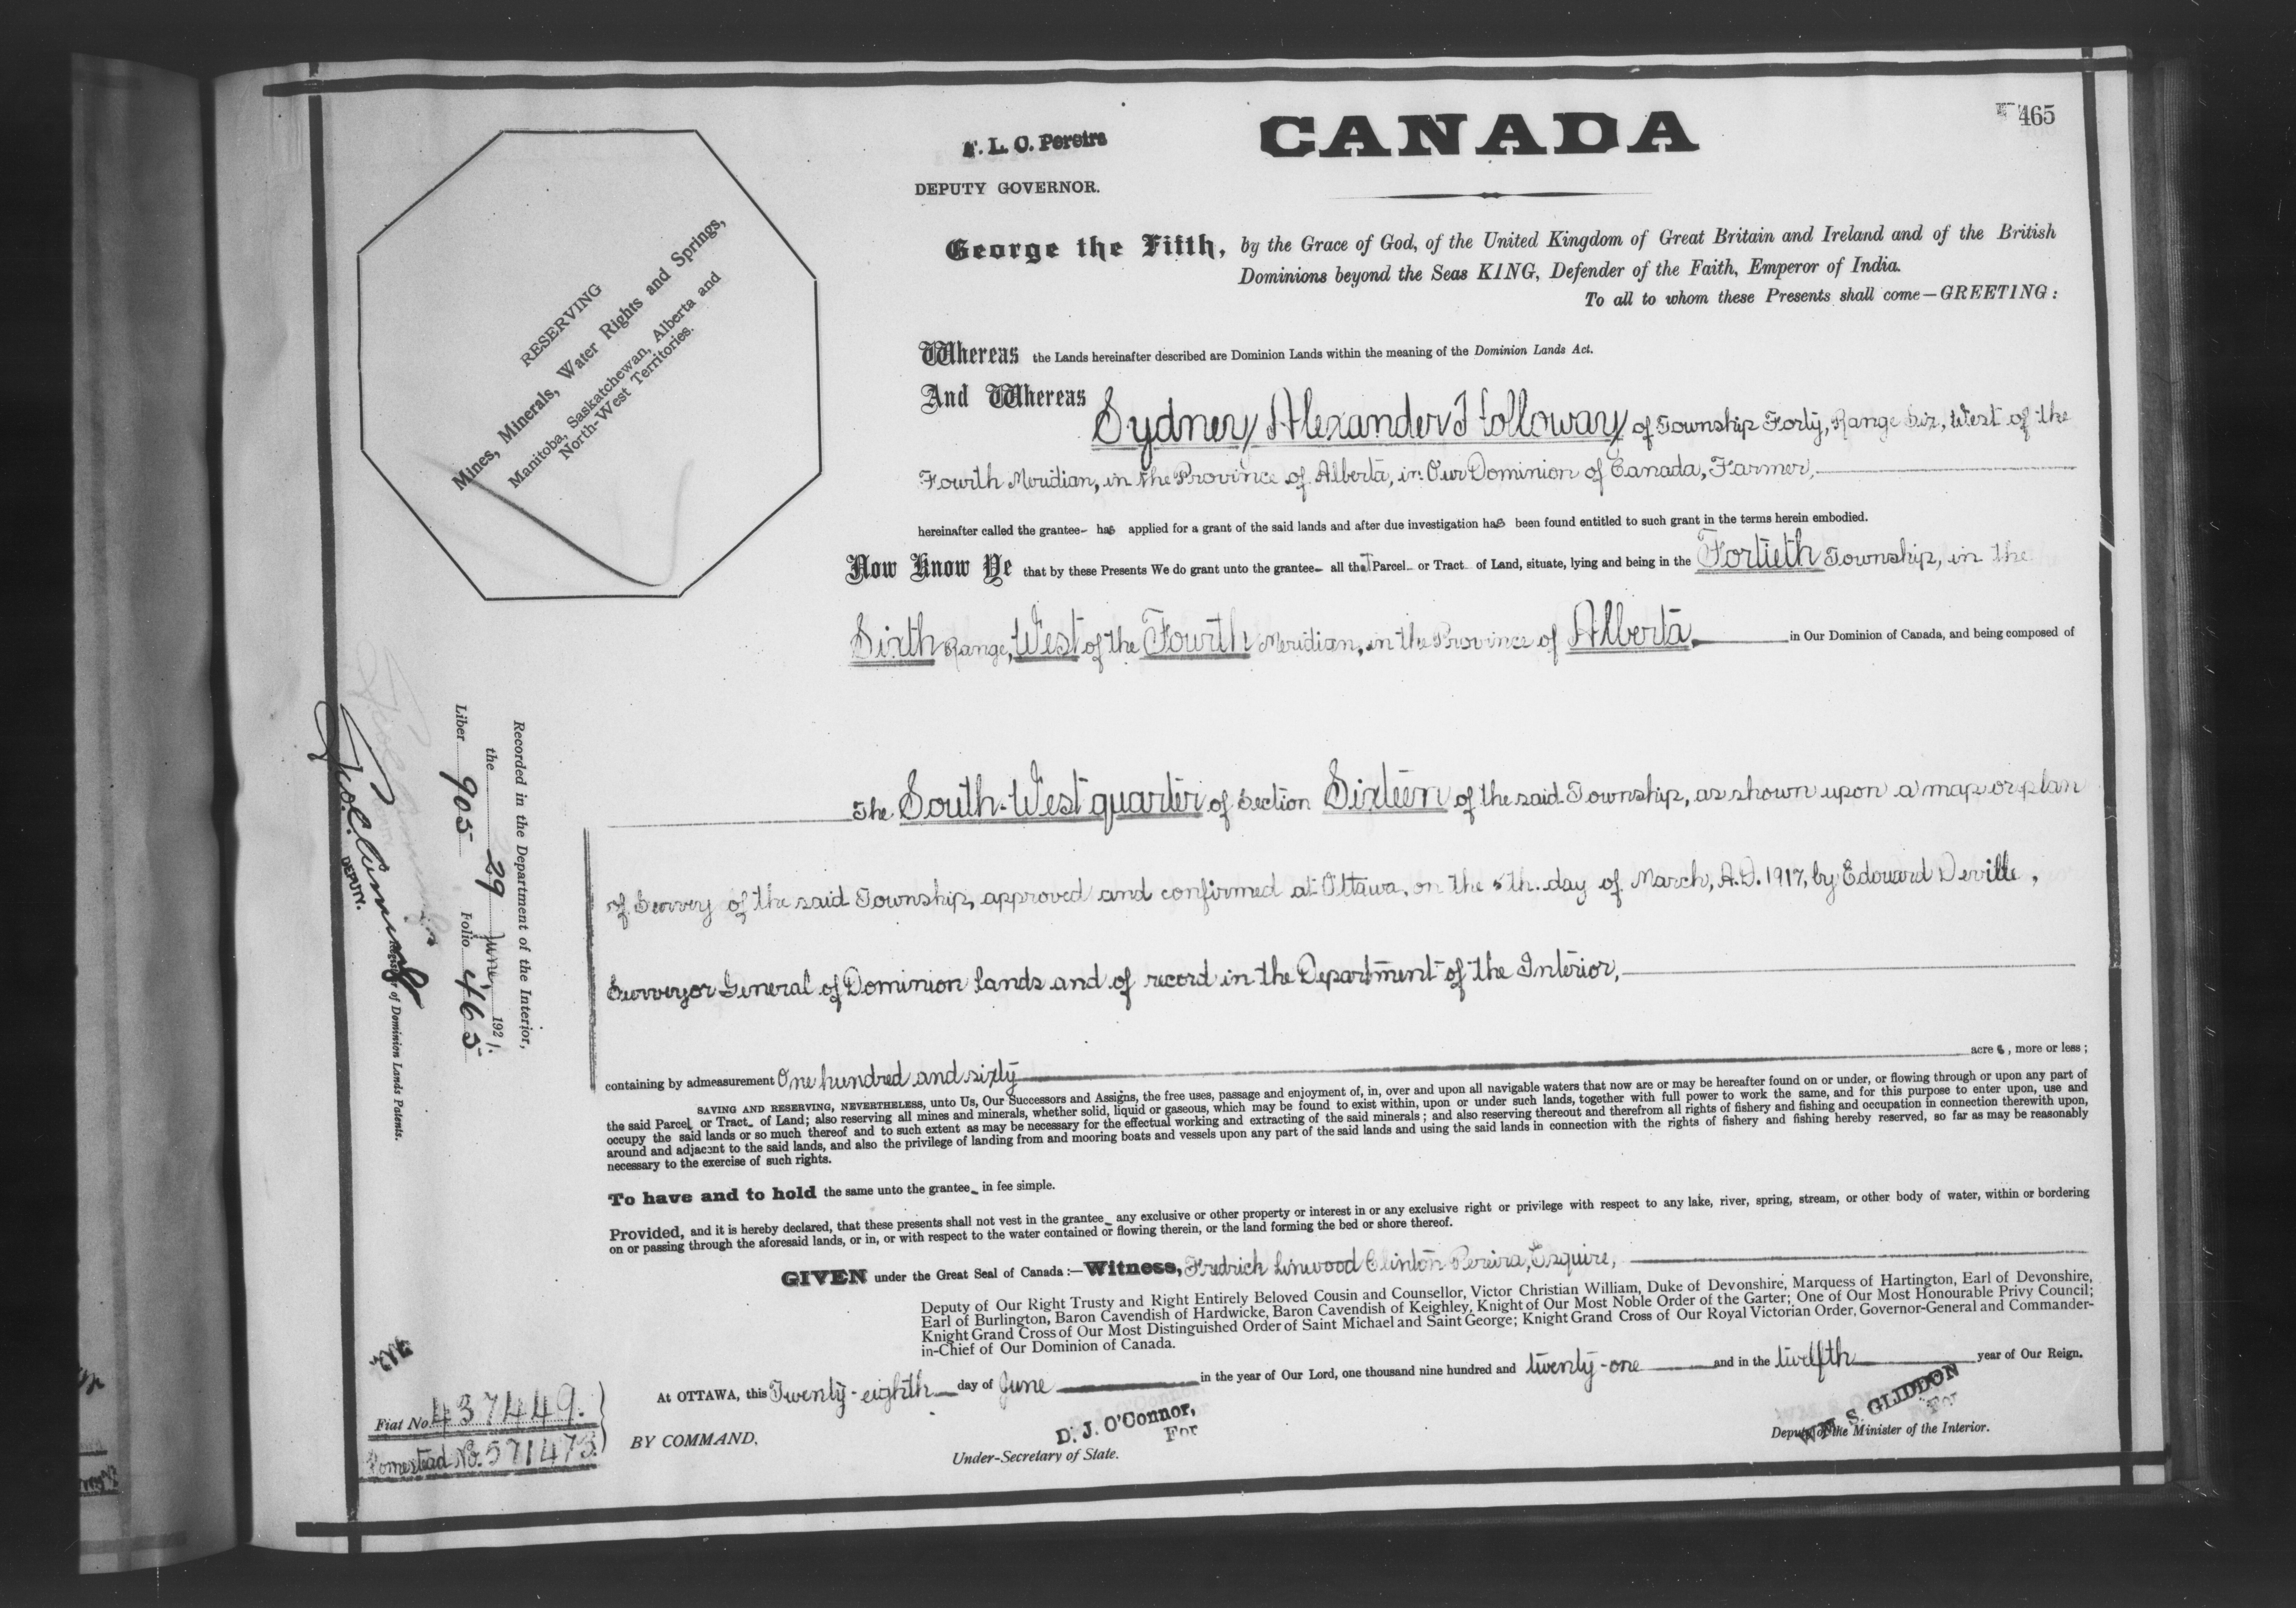 465
F. L. C. Pereira
CANADA
DEPUTY GOVERNOR.
RESERVING
Mines, Minerals, Water Rights and Springs,
Manitoba, Saskatchewan, Alberta and
North-West Territories.
George the Fifth, by the Grace of God, of the United Kingdom of Great Britain and Ireland and of the British
Dominions beyond the Seas KING, Defender of the Faith, Emperor of India.
To all to whom these Presents shall come—GREETING:
Whereas the Lands hereinafter described are Dominion Lands within the meaning of the Dominion Lands Act.
And Whereas Sydney Alexander Holloway of Township Forty, Range Six, West of the
Fourth Meridian, in the Province of Alberta, in Our Dominion of Canada, Farmer,
hereinafter called the grantee- has applied for a grant of the said lands and after due investigation has been found entitled to such grant in the terms herein embodied.
Now Know Ye that by these Presents We do grant unto the grantee- all that Parcel- or Tract- of Land, situate, lying and being in the Fortieth Township, in the
Sixth Range, West of the Fourth Meridian, in the Province of Alberta, in Our Dominion of Canada, and being composed of
The South-West quarter of Section Sixteen of the said Township, as shown upon a map or plan
of Survey of the said Township, approved and confirmed at Ottawa, on the 5th. day of March, A.D. 1917, by Edouard Deville,
Surveyor General of Dominion lands and of record in the Department of the Interior,
containing by admeasurement One hundred and sixty acres, more or less;
SAVING AND RESERVING, NEVERTHELESS, unto Us, Our Successors and Assigns, the free uses, passage and enjoyment of, in, over and upon all navigable waters that now are or may be hereafter found on or under, or flowing through or upon any part of
the said Parcel- or Tract- of Land; also reserving all mines and minerals, whether solid, liquid or gaseous, which may be found to exist within, upon or under such lands, together with full power to work the same, and for this purpose to enter upon, use and
occupy the said lands or so much thereof and to such extent as may be necessary for the effectual working and extracting of the said minerals; and also reserving thereout and therefrom all rights of fishery and fishing and occupation in connection therewith upon,
around and adjacent to the said lands, and also the privilege of landing from and mooring boats and vessels upon any part of the said lands and using the said lands in connection with the rights of fishery and fishing hereby reserved, so far as may be reasonably
necessary to the exercise of such rights.
To have and to hold the same unto the grantee- in fee simple.
Provided, and it is hereby declared, that these presents shall not vest in the grantee- any exclusive or other property or interest in or any exclusive right or privilege with respect to any lake, river, spring, stream, or other body of water, within or bordering
on or passing through the aforesaid lands, or in, or with respect to the water contained or flowing therein, or the land forming the bed or shore thereof.
GIVEN under the Great Seal of Canada:—Witness, Fredrick Linwood Clinton Pereira, Esquire,
Deputy of Our Right Trusty and Right Entirely Beloved Cousin and Counsellor, Victor Christian William, Duke of Devonshire, Marquess of Hartington, Earl of Devonshire,
Earl of Burlington, Baron Cavendish of Hardwicke, Baron Cavendish of Keighley, Knight of Our Most Noble Order of the Garter; One of Our Most Honourable Privy Council;
Knight Grand Cross of Our Most Distinguished Order of Saint Michael and Saint George; Knight Grand Cross of Our Royal Victorian Order, Governor-General and Commander-
in-Chief of Our Dominion of Canada.
At OTTAWA, this Twenty-eighth day of June in the year of Our Lord, one thousand nine hundred and twenty-one and in the twelfth year of Our Reign.
BY COMMAND,
D. J. O'Connor,
For
Under-Secretary of State.
WM. S. GLIDDON
For
Deputy of the Minister of the Interior.
Recorded in the Department of the Interior,
the 29 June, 1921.
Liber 905 Folio 465
DEPUTY.
Registrar of Dominion Lands Patents.
Fiat No. 437449.
Homestead No. 571473.